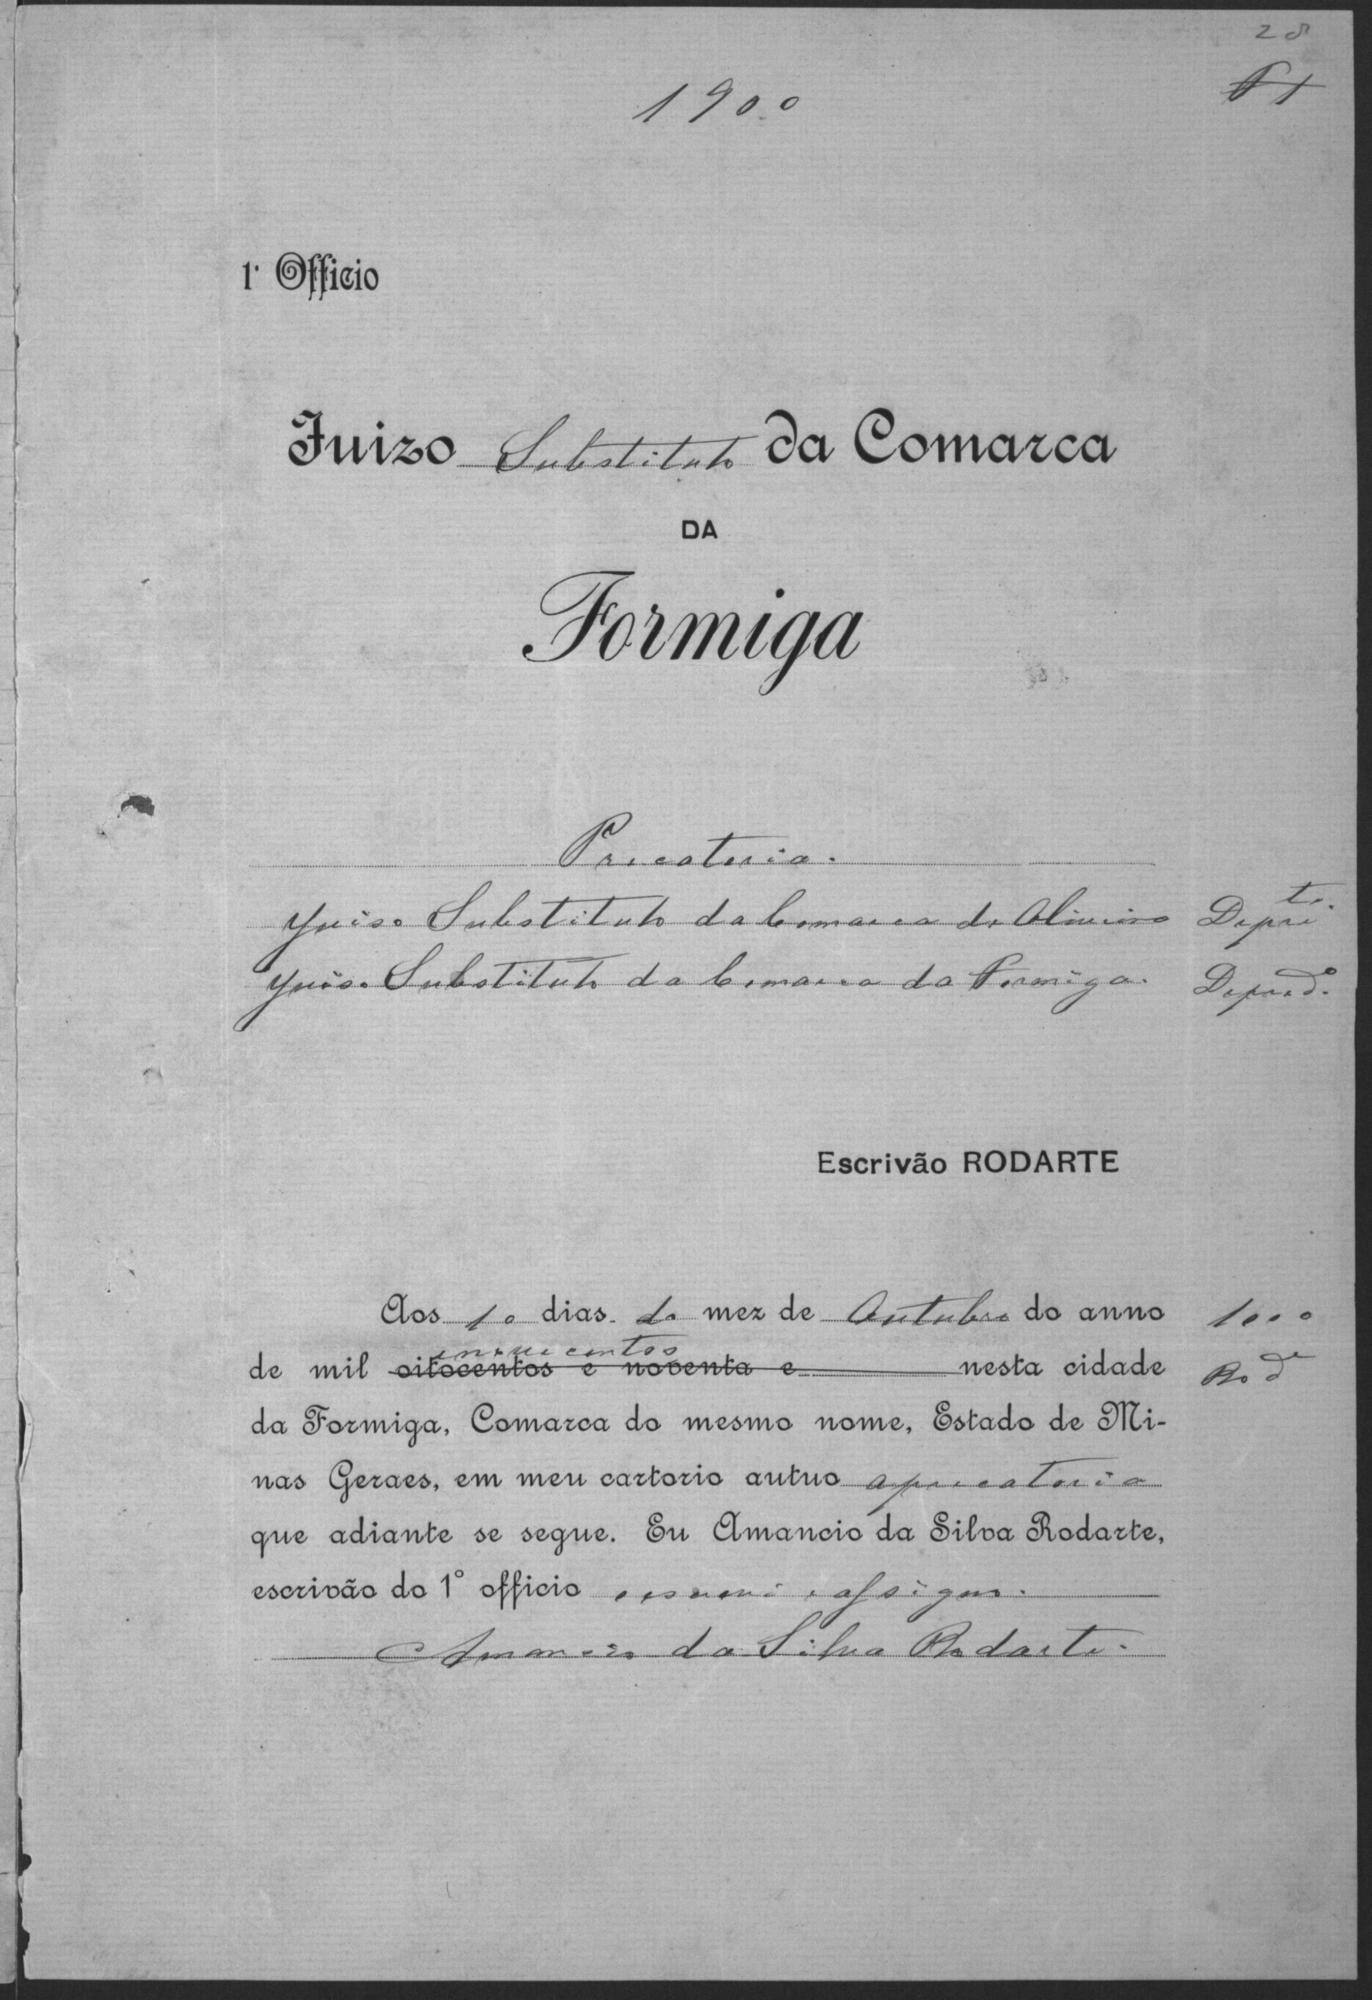 28
1900
1º Officio
Juizo Substituto da Comarca
DA
Formiga
Precatoria.
Juiso Substituto da Comarca de Oliveira Depre.te
Juiso Substituto da Comarca da Formiga. Depred.º
Escrivão RODARTE
Aos 10 dias do mez de Outubro do anno 1000
novecentos
de mil oitocentos e noventa e nesta cidade Rod.e
da Formiga, Comarca do mesmo nome, Estado de Mi-
nas Geraes, em meu cartorio autuo a precatoria
que adiante se segue. Eu Amancio da Silva Rodarte,
escrivão do 1º officio escrevi e assigno.
Amancio da Silva Rodarte.